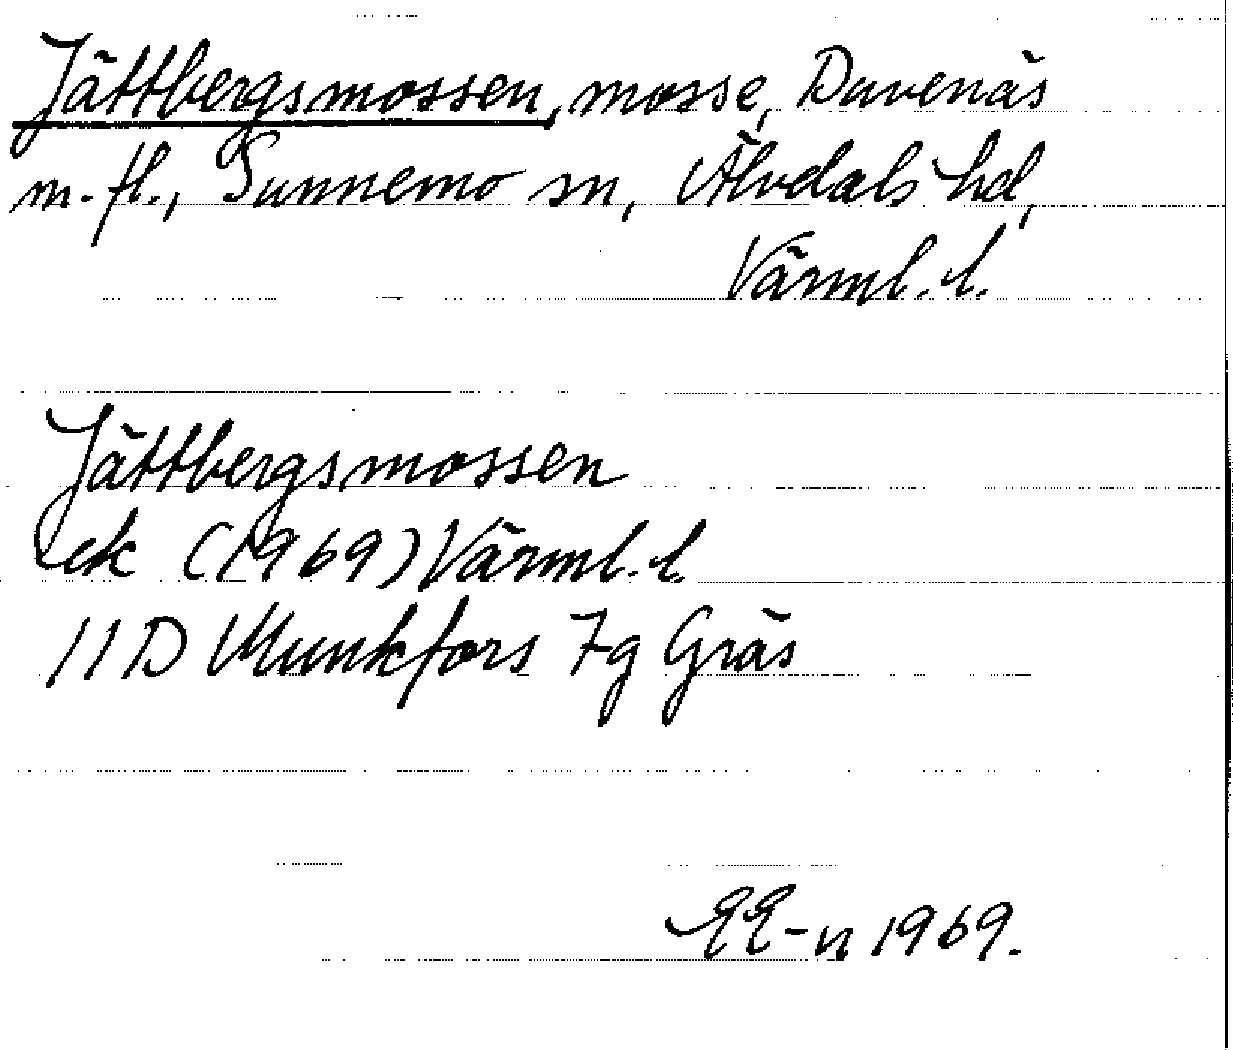 Jättbergsmossen, mosse, Davenäs
m. fl., Sunnemo sn, Älvdals hd,
Värml. l.
Jättbergsmossen
ek (1969) Värml. l.
11D Munkfors 7g Gräs
EE-n 1969.